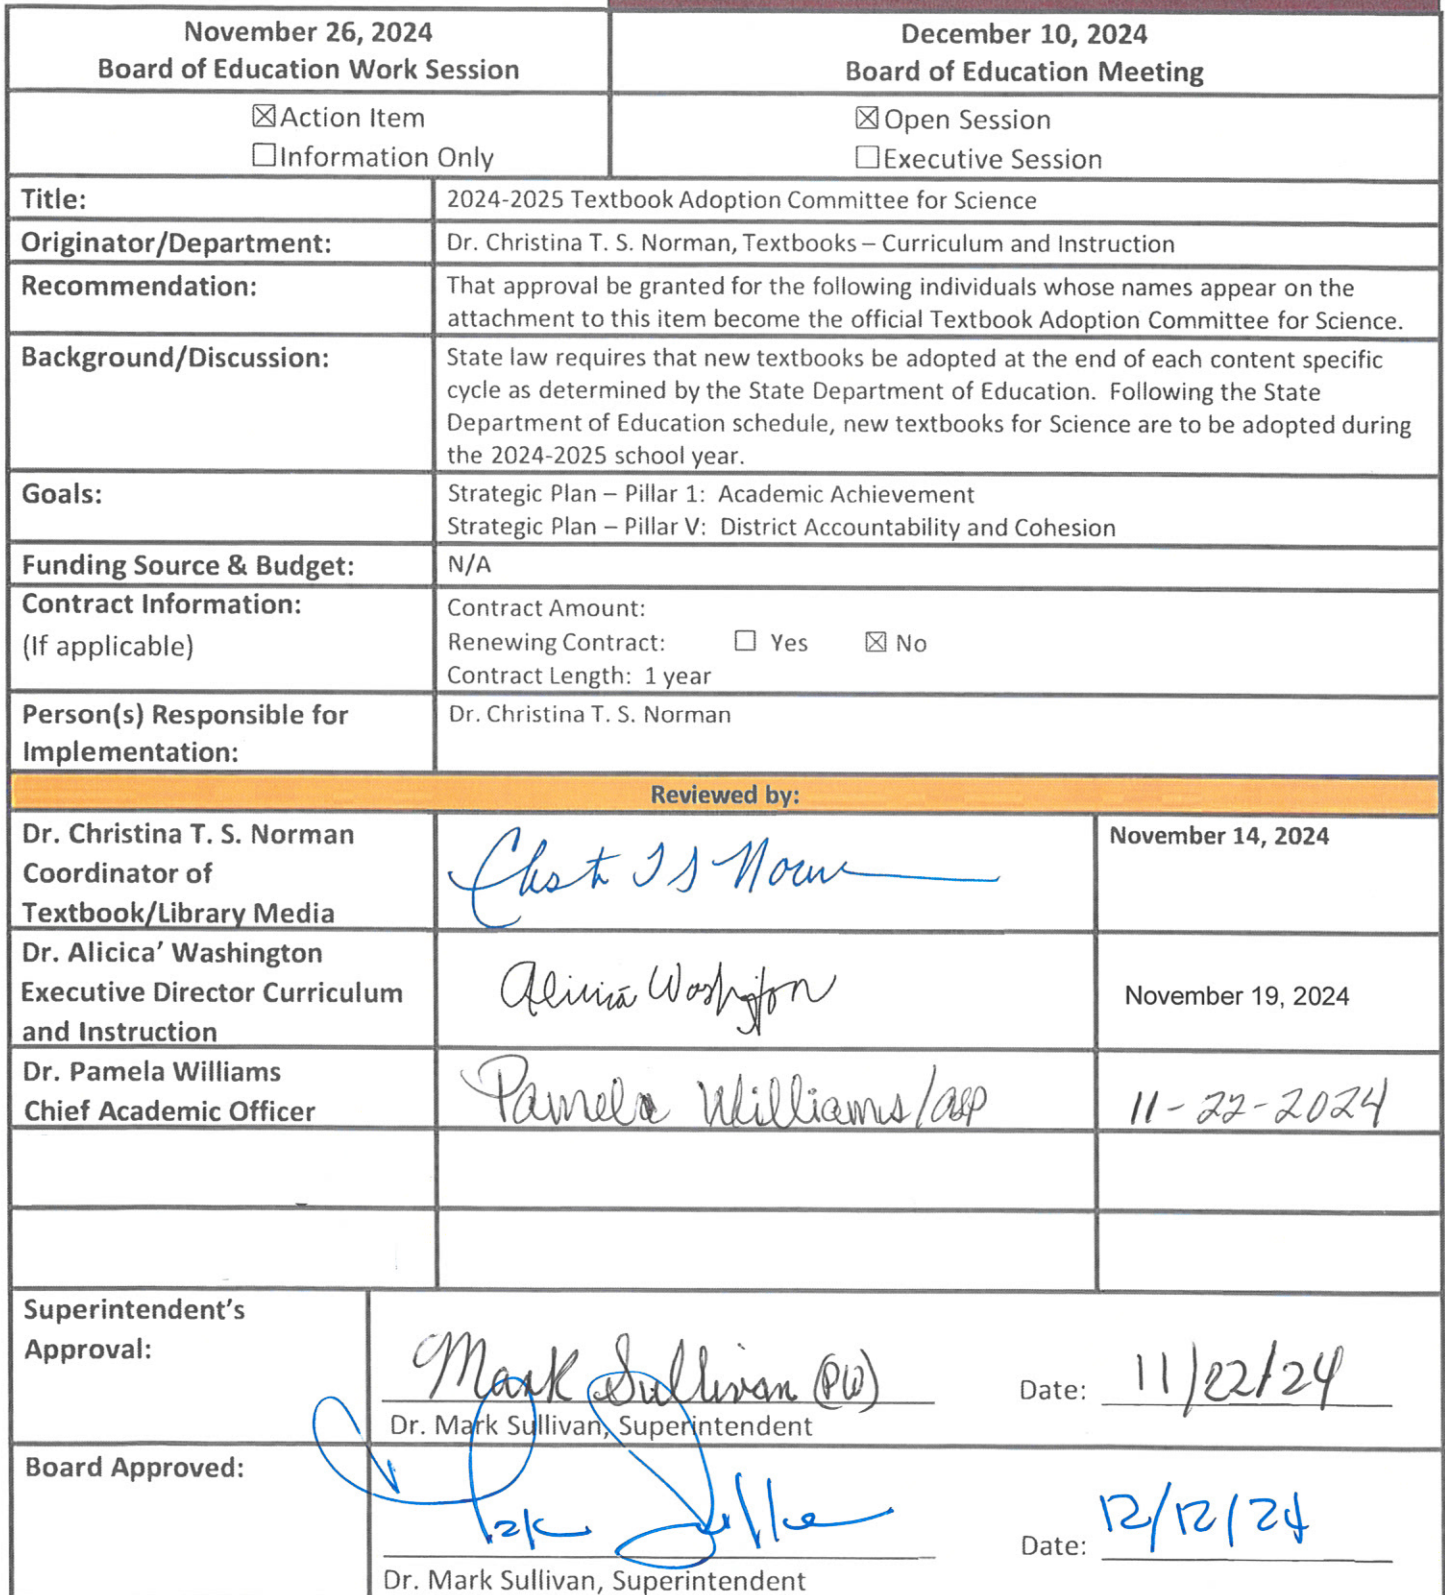 November 26, 2024
Board of Education Work Session
December 10, 2024
Board of Education Meeting
☒Action Item
☐Information Only
☒Open Session
☐Executive Session
Title:
2024-2025 Textbook Adoption Committee for Science
Originator/Department:
Dr. Christina T. S. Norman, Textbooks – Curriculum and Instruction
Recommendation:
That approval be granted for the following individuals whose names appear on the
attachment to this item become the official Textbook Adoption Committee for Science.
Background/Discussion:
State law requires that new textbooks be adopted at the end of each content specific
cycle as determined by the State Department of Education.  Following the State
Department of Education schedule, new textbooks for Science are to be adopted during
the 2024-2025 school year.
Goals:
Strategic Plan – Pillar 1:  Academic Achievement
Strategic Plan – Pillar V:  District Accountability and Cohesion
Funding Source & Budget:
N/A
Contract Information:
(If applicable)
Contract Amount:
Renewing Contract: ☐ Yes ☒ No
Contract Length:  1 year
Person(s) Responsible for
Implementation:
Dr. Christina T. S. Norman
Reviewed by:
Dr. Christina T. S. Norman
Coordinator of
Textbook/Library Media
November 14, 2024
Dr. Alicica’ Washington
Executive Director Curriculum
and Instruction
Alicicá Washington
November 19, 2024
Dr. Pamela Williams
Chief Academic Officer
Pamela Williams/asp
11-22-2024
Superintendent’s
Approval:
Mark Sullivan (PW)
Date: 11/22/24
Dr. Mark Sullivan, Superintendent
Board Approved:
Date: 12/12/24
Dr. Mark Sullivan, Superintendent